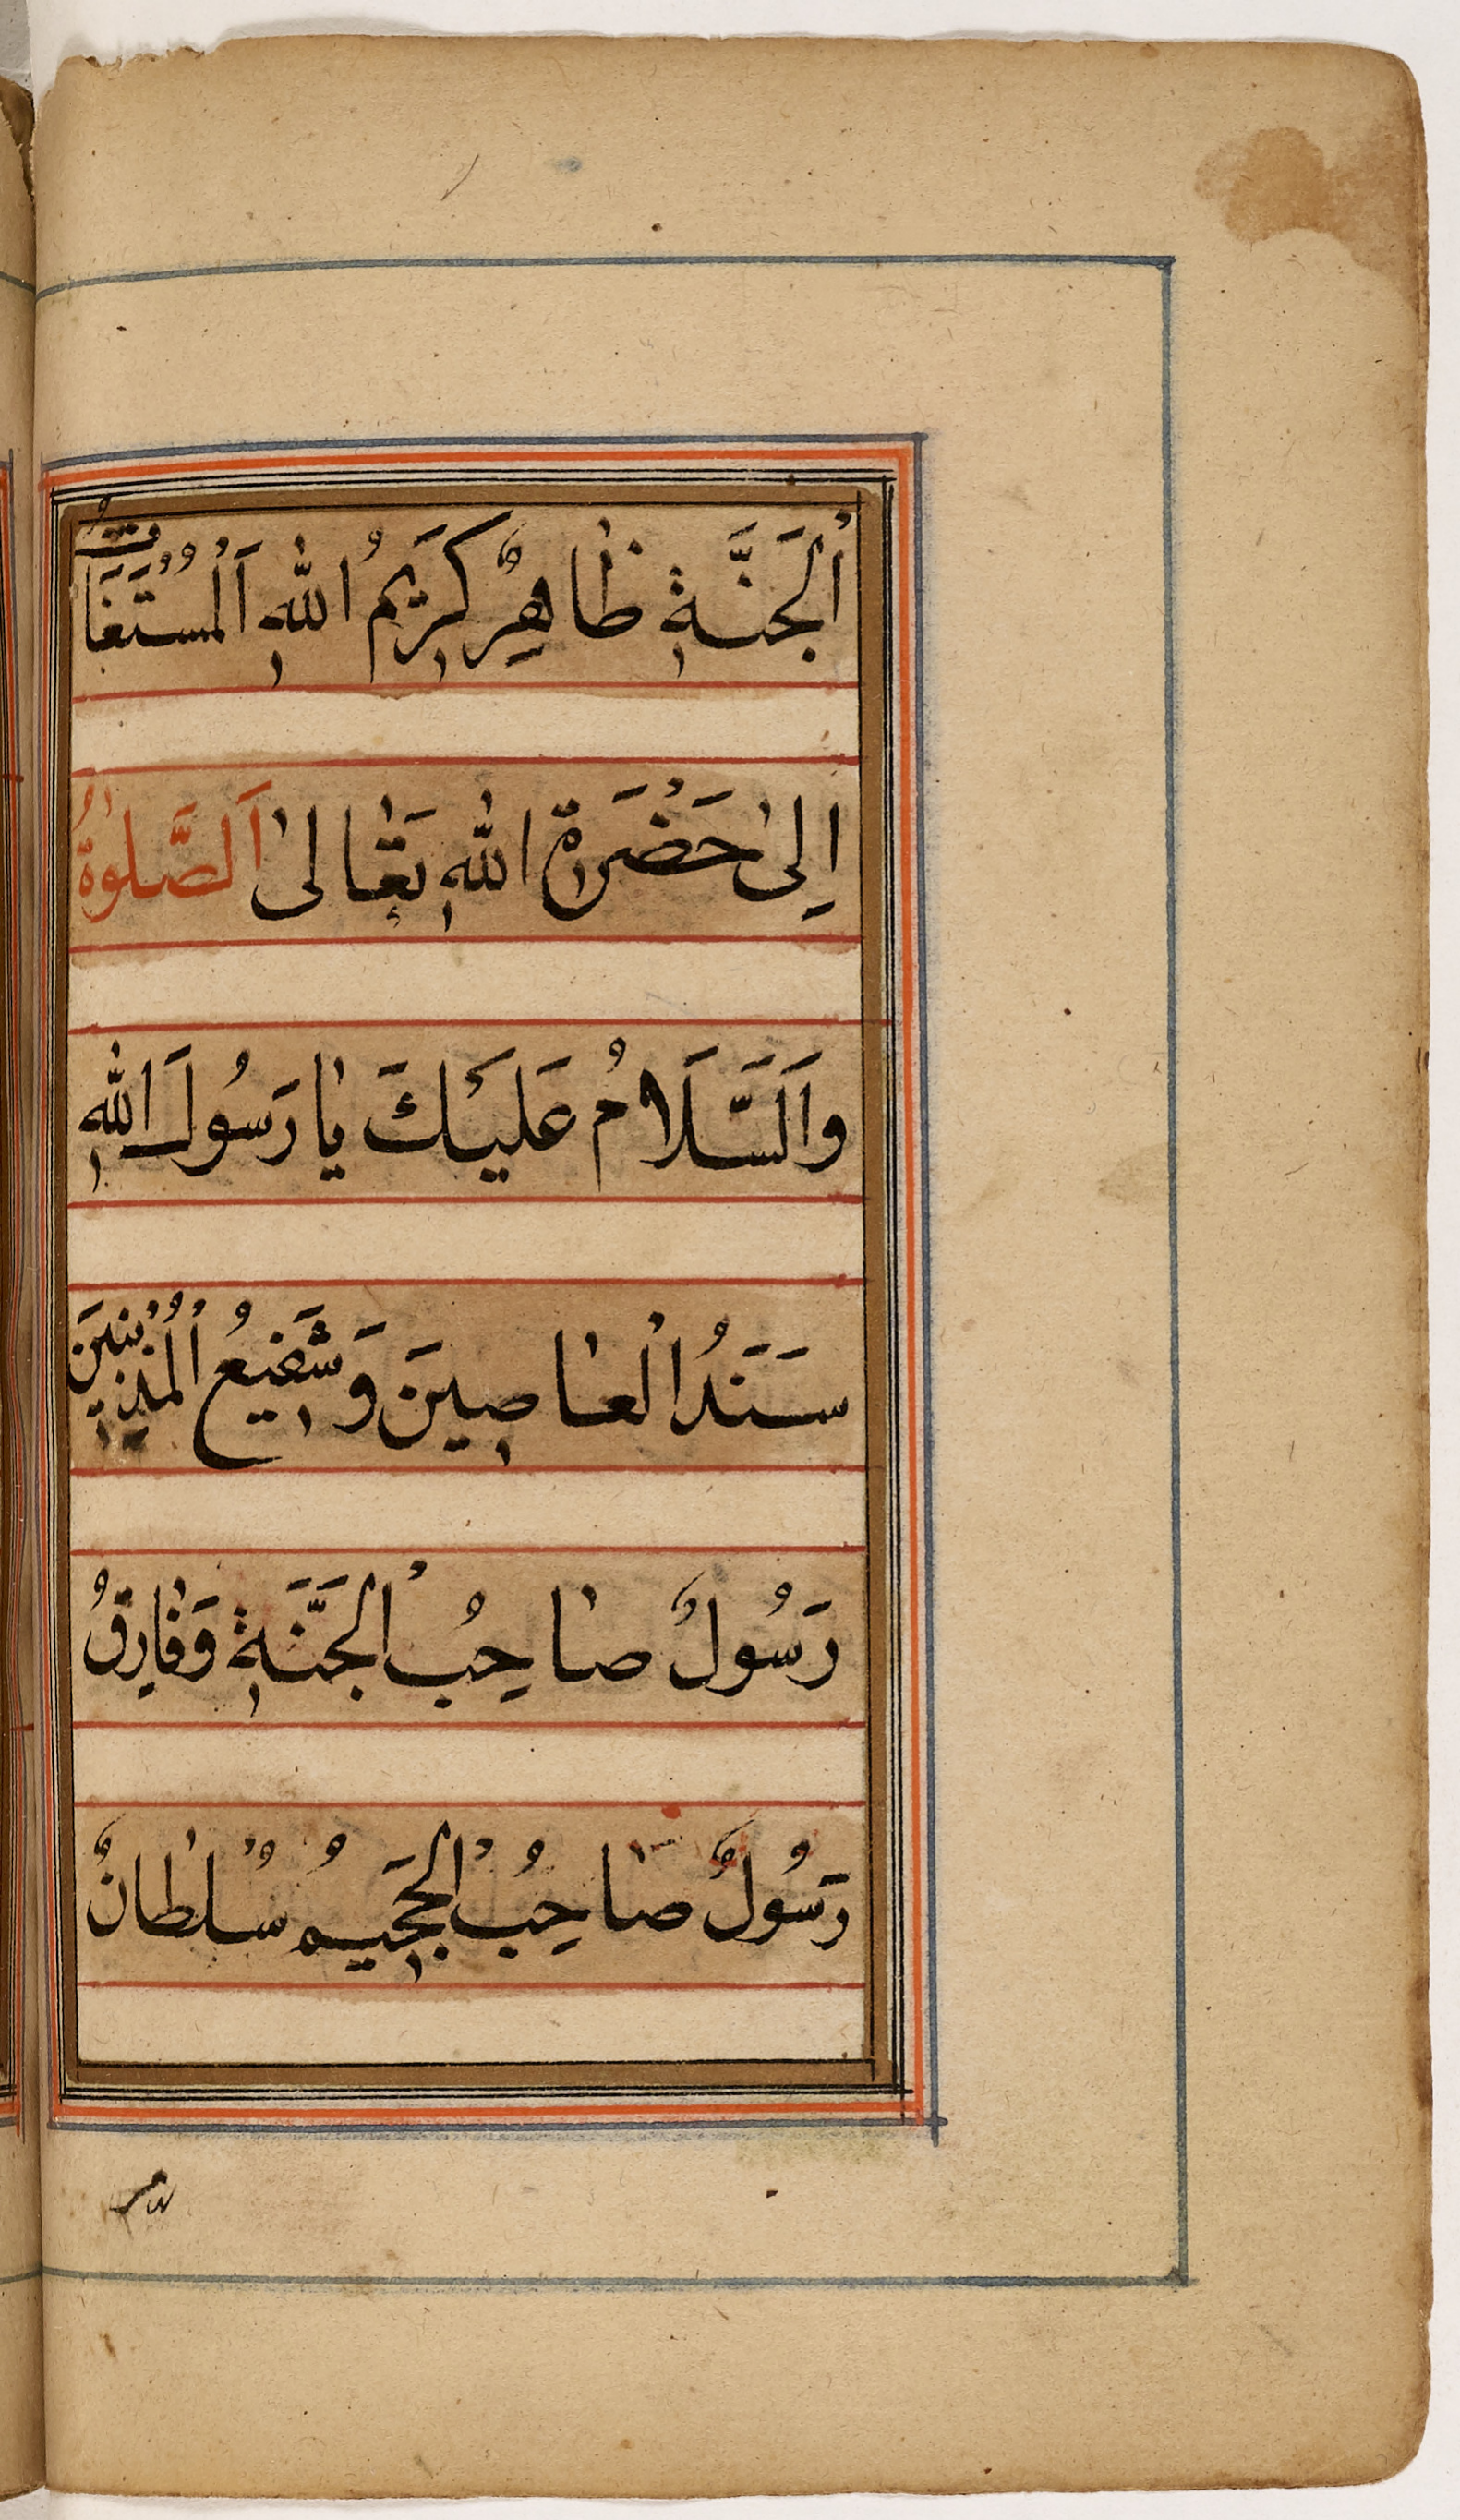 اْلجَنَّةِ ظاهِرٌ كَرِيمُ اللهِ اَلْمُسْتَغَاثُ
اِلىٰ حَضْرَةِ اللهِ تَعٰالىٰ اَلصَّلٰوةُ
وَاَلسَّلَامُ عَلَيْكَ يٰا رَسُولَ اللهِ
سَنَدُ الْعٰاصِينَ وَشَفِيعُ الْمُذْنِبِينَ
رَسُولٌ صٰاحِبُ الْجَنَّةِ وَفٰارِقُ
رَسُولٌ صٰاحِبُ الْجَحِيمُ سُلْطٰانٌ